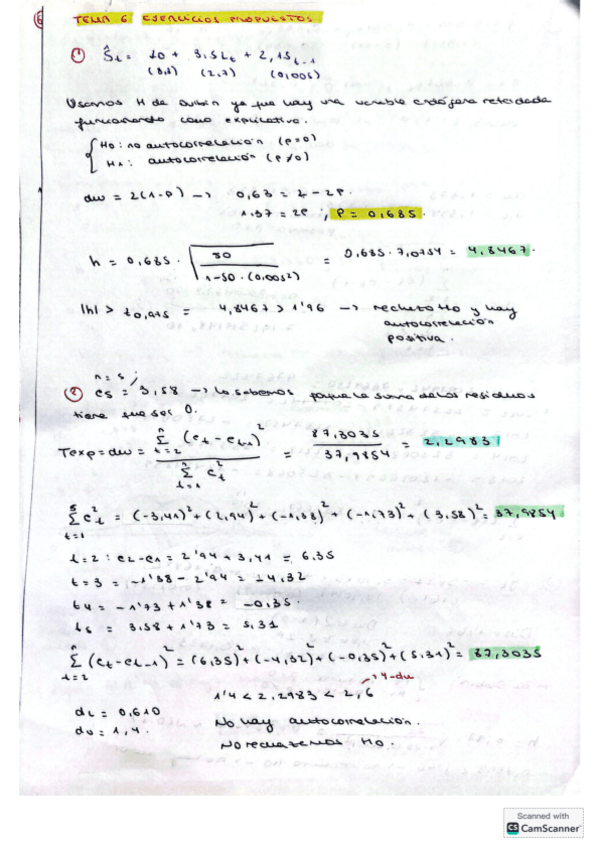 TEMA 6 EJERCICIOS PROPUESTOS
① Ŝt = 10 + 3,5Lt + 2,1St-1
(0,1) (2,7) (0,005)
Usamos H de Durbin ya que hay una variable endógena retardada
funcionando como explicativa.
H0: no autocorrelación (ρ=0)
H1: autocorrelación (ρ≠0)
dw = 2(1-ρ) → 0,63 = 2 - 2ρ
1.37 = 2ρ ; ρ = 0,685.
h = 0,685 · √ 50 / 1-50·(0,005²) = 0,685 · 7,0754 = 4,8467.
|h| > t0,975 = 4,8467 > 1'96 → rechazo H0 y hay
autocorrelación
positiva.
n = 5 ;
② e5 = 3,58 → lo sabemos porque la suma de los residuos
tiene que ser 0.
Texp = dw = Σ t=2 (et - et-1)² / Σ t=1 et² = 87,3035 / 37,9854 = 2,2983
Σ t=1 et² = (-3,41)² + (2,94)² + (-1,38)² + (-1,73)² + (3,58)² = 37,9854
t=2 : e2-e1 = 2'94 + 3,41 = 6.35
t=3 = -1'38 - 2'94 = -4,32
t4 = -1'73 + 1'38 = -0,35.
t5 = 3,58 + 1'73 = 5,31
Σ t=2 (et - et-1)² = (6,35)² + (-4,32)² + (-0,35)² + (5,31)² = 87,3035
→ 4-du
1'4 < 2,2983 < 2,6
dL = 0,610
du = 1,4.
No hay autocorrelación.
No rechazamos H0.
Scanned with
CS CamScanner